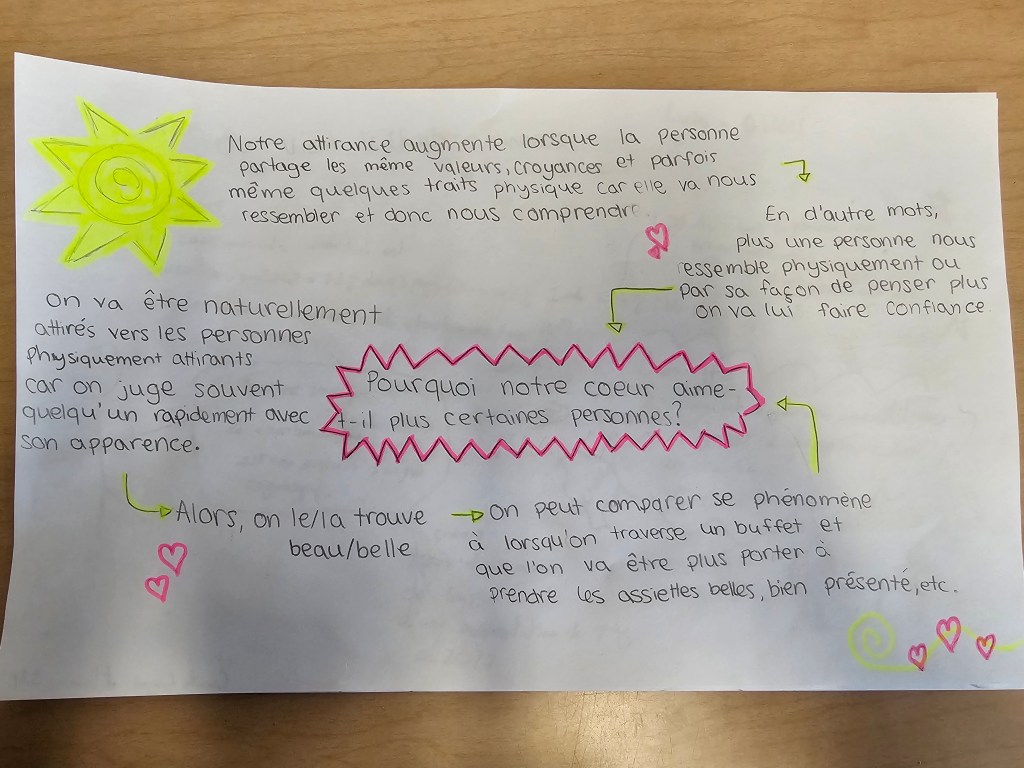 Notre attirance augmente lorsque la personne
partage les même valeurs, croyances et parfois
même quelques traits physique car elle va nous
ressembler et donc nous comprendre
En d'autre mots,
plus une personne nous
ressemble physiquement ou
par sa façon de penser plus
on va lui faire confiance
On va être naturellement
attirés vers les personnes
physiquement attirants
car on juge souvent
quelqu'un rapidement avec
son apparence.
Pourquoi notre coeur aime-
t-il plus certaines personnes?
Alors, on le/la trouve
beau/belle
On peut comparer se phénomène
à lorsqu'on traverse un buffet et
que l'on va être plus porter à
prendre les assiettes belles, bien présenté, etc.